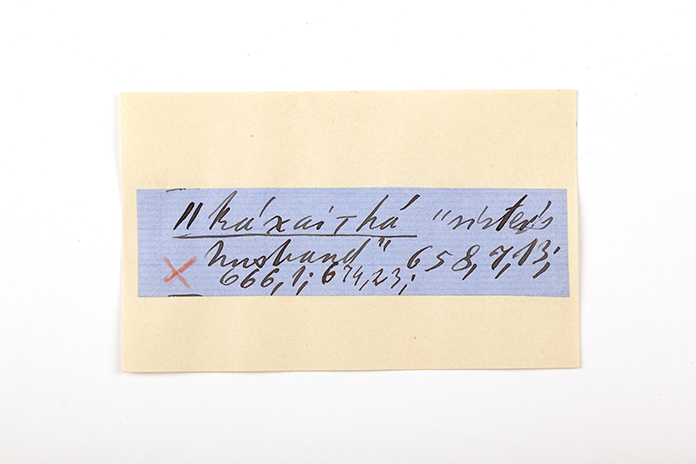 ‖ ká χai τ há "sister's
husband" 658,7,13;
666,1; 674,23;